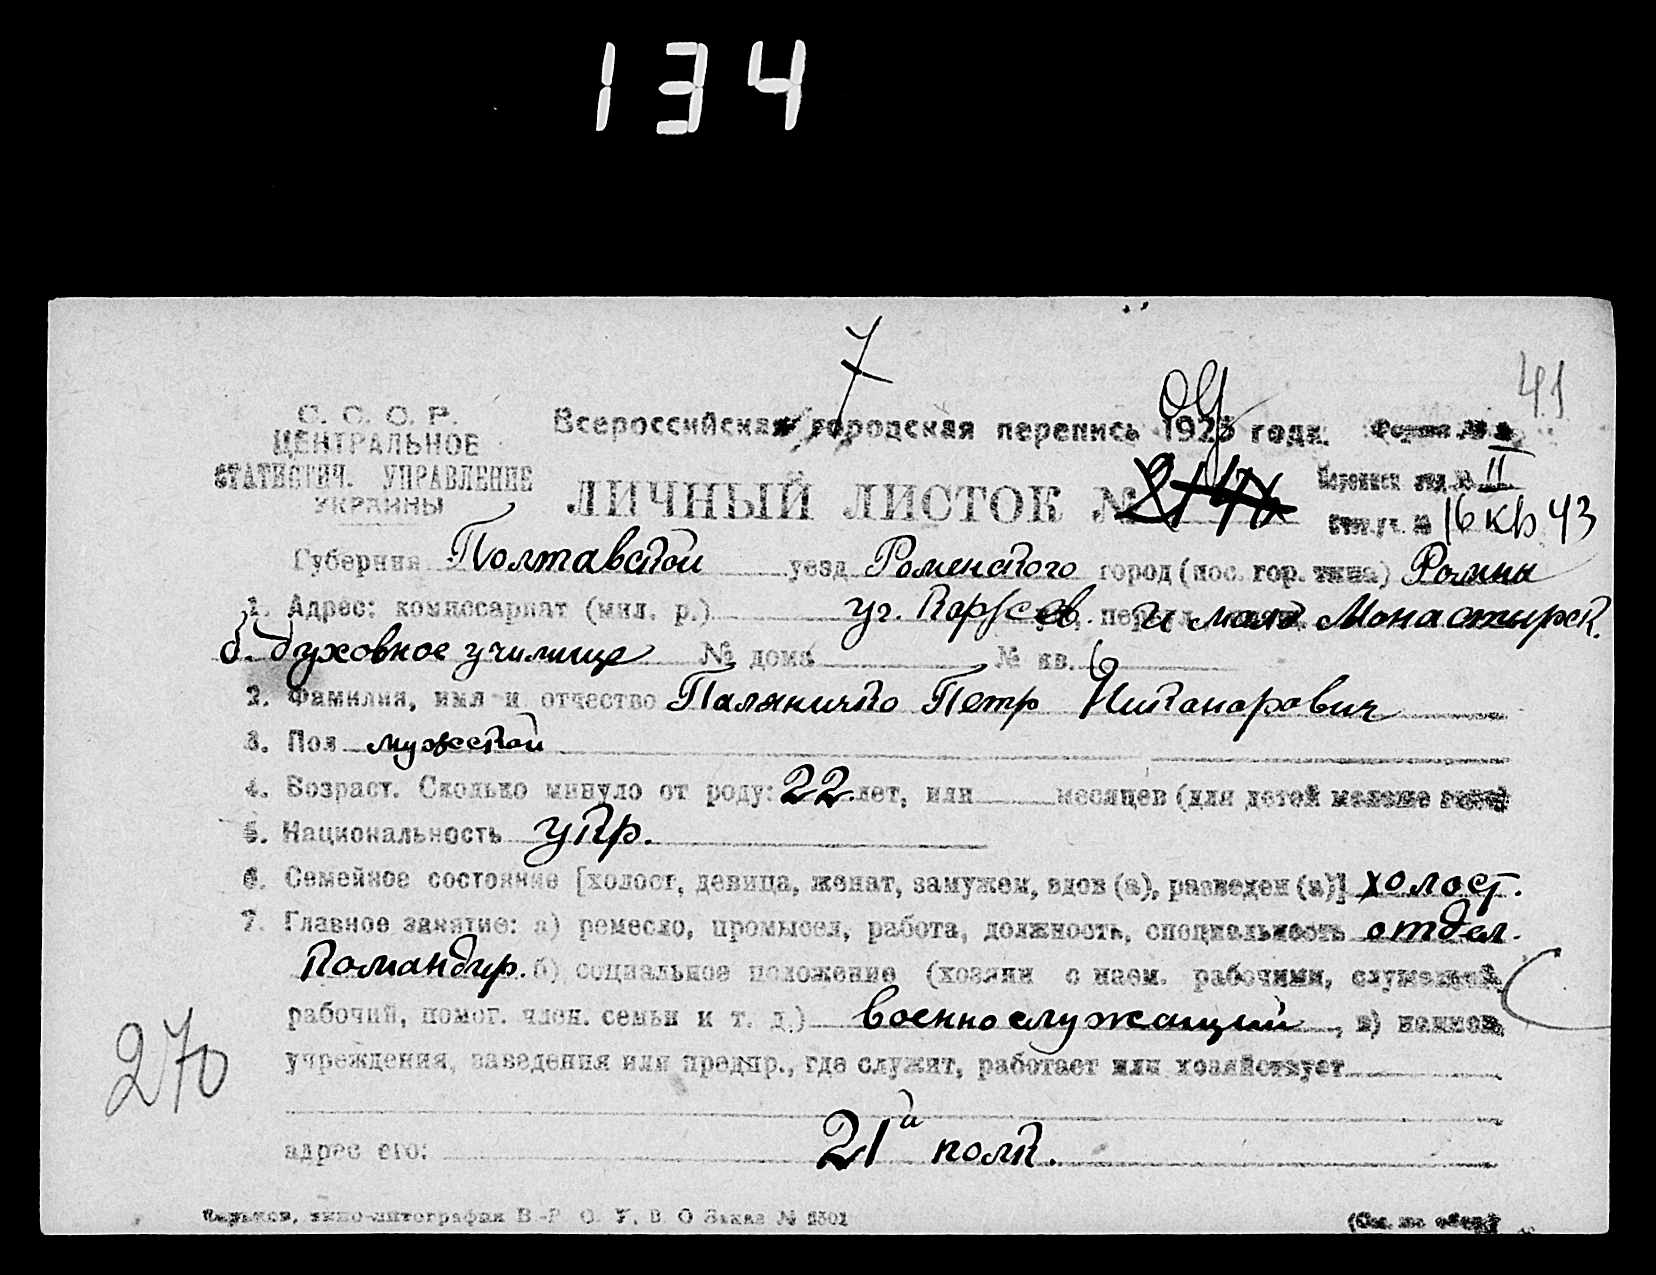 134
7
41
С. С. С. Р.
ЦЕНТРАЛЬНОЕ
СТАТИСТИЧ. УПРАВЛЕНИЕ
УКРАИНЫ
Всероссийская городская перепись 1923 года. Форма №
ЛИЧНЫЙ ЛИСТОК №
II
16 кв 43
Губерния Полтавской уезд Роменского город (пос. гор. типа) Ромны
1. Адрес: комиссариат (мил. р.) уг. и Монастырск.
б. духовное училище № дома № кв.
2. Фамилия, имя и отчество Паляничко Петр Никанорович
3. Пол мужской
4. Возраст. Сколько минуло от роду: 22 лет, или месяцев (для детей моложе года)
5. Национальность укр.
6. Семейное состояние [холост, девица, женат, замужем, вдов (а), разведен (а)] холост.
7. Главное занятие: а) ремесло, промысел, работа, должность, специальность отдел.
командир. б) социальное положение (хозяин с наем. рабочими, служащий,
рабочий, помог. член. семьи и т. д.) военнослужащий, в) наимен.
учреждения, заведения или предпр., где служит, работает или хозяйствует
270
адрес его: 21й полк.
Харьков, типо-литография В.-Р. О. У. В. О Заказ № 2301
(См. на обор.)